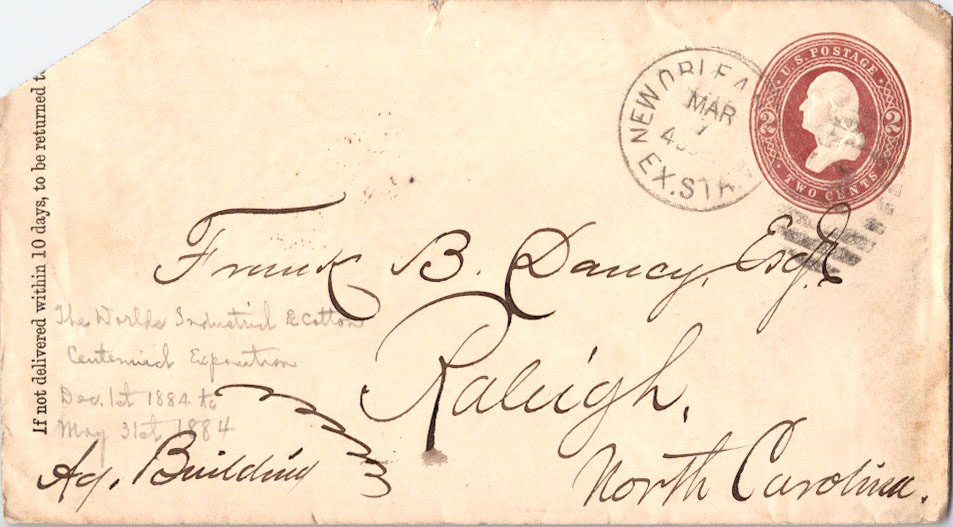 If not delivered within 10 days, to be returned t
NEW ORLEA
MAR
7
4
EX. STA
U.S. POSTAGE
2 2
TWO CENTS
Frank B. Dancy, Esq.
Raleigh,
North Carolina.
Ag. Building
The Worlds Industrial & Cotton
Centennial Exposition
Dec. 1st 1884 to
May 31st 1884